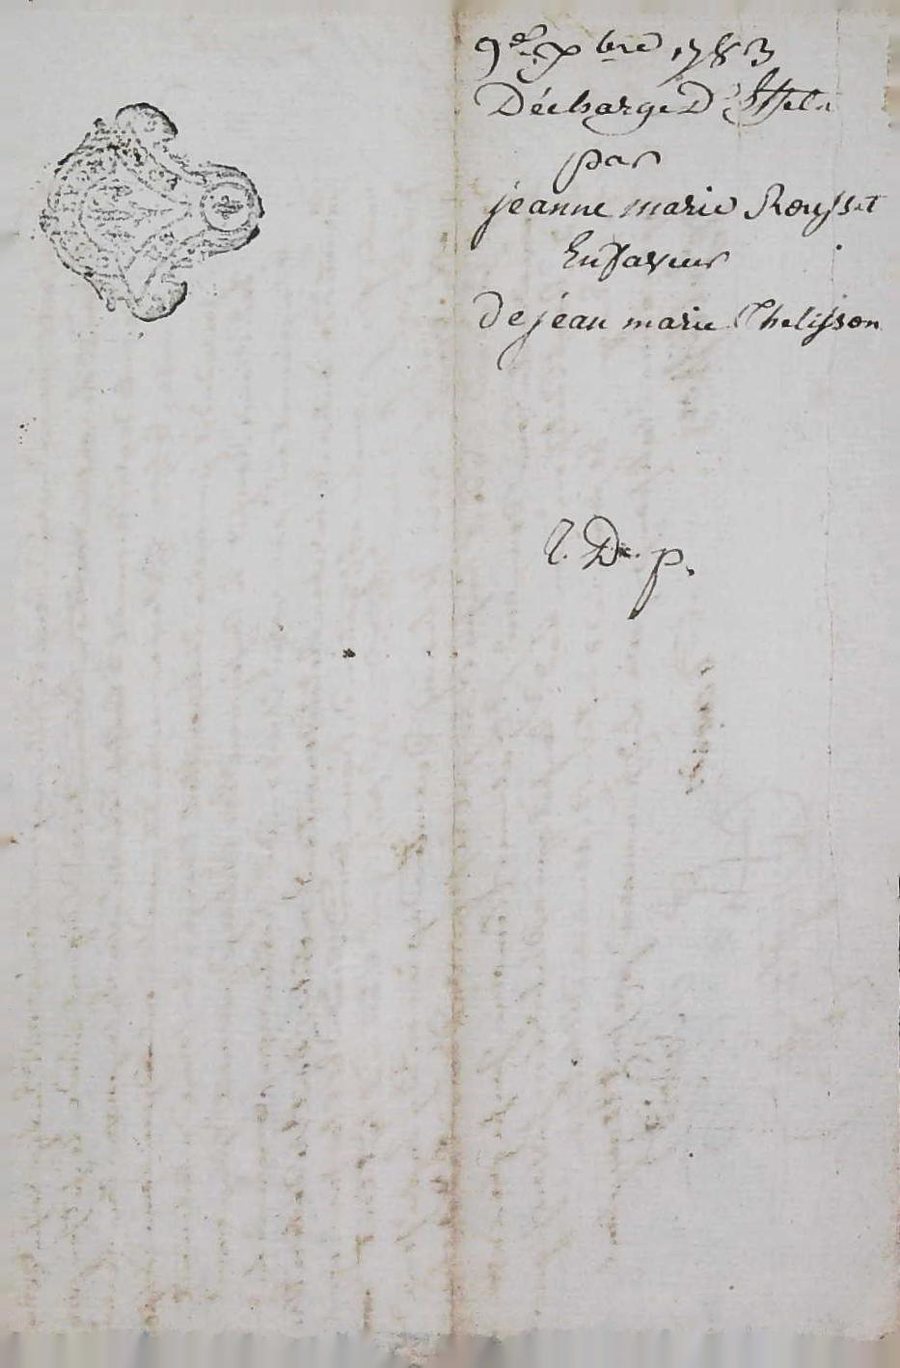 9e. Xbre 1783
Décharge D'Effets
par
jeanne marie Rousset
En faveur
De jean marie Chelisson
D. p.